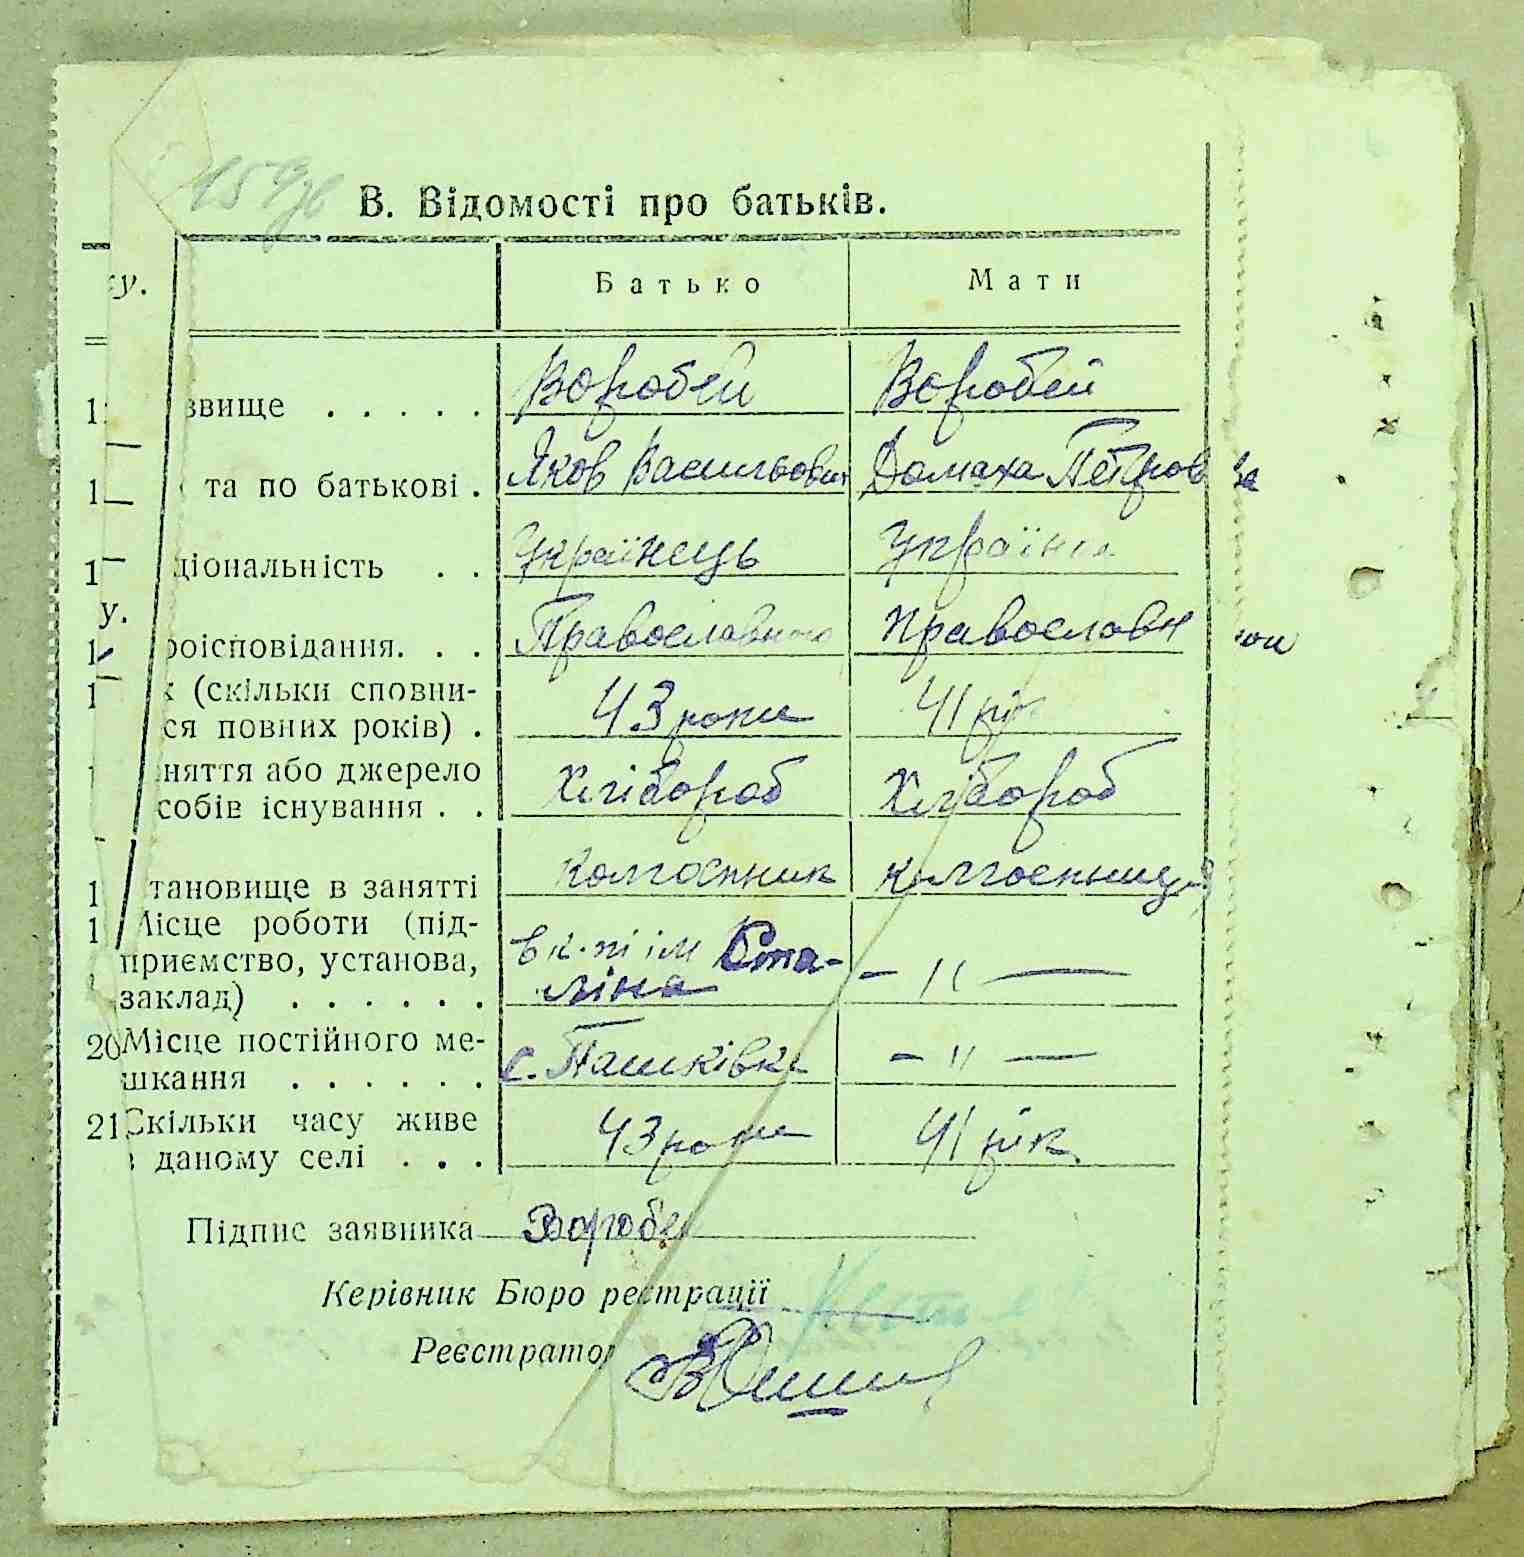 159зв
В. Відомості про батьків.
у.
Батько Мати
звище . . . . . Воробей Воробей
та по батькові . Яков Васильович Домаха Петров ва
ціональність . . Українець Україн
у.
роісповідання. . . Православного Православн ои
к (скільки сповни-
ся повних років) . 43 роки 41 рік
няття або джерело
собів існування . . Хлібороб Хлібороб
тановище в занятті колгоспник колгоспниця
Місце роботи (під-
приємство, установа, в к-пі ім Ста- — " —
заклад) . . . . . . ліна
20 Місце постійного ме-
шкання . . . . . . с. Пашківка — " —
21 Скільки часу живе
в даному селі . . . 43 роки 41 рік
Підпис заявника Воробе
Керівник Бюро реєстрації
Реєстратор